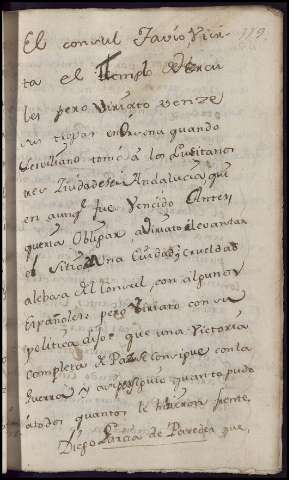 119
El consul Favio, Visi-
ta el Templo de Ercu
les pero Viriato venze
sus tropas en quando
Serviliano tomó a los Lusitanos
tres Ciudades de Andalucia que
en aunq.e fue Vencido Anteri
queria Obligar a Viriato levantar
el Sitio de Una Ciudad y Crueldad
alebosa del Consul con algunos
Españoles pero Viriato con su
politica dijo que una Victoria
completa de Paz se consigue con la
Guerra y quanto pudo
á todos quantos le hizieron frente,
Diego Garcia de Paredes que,